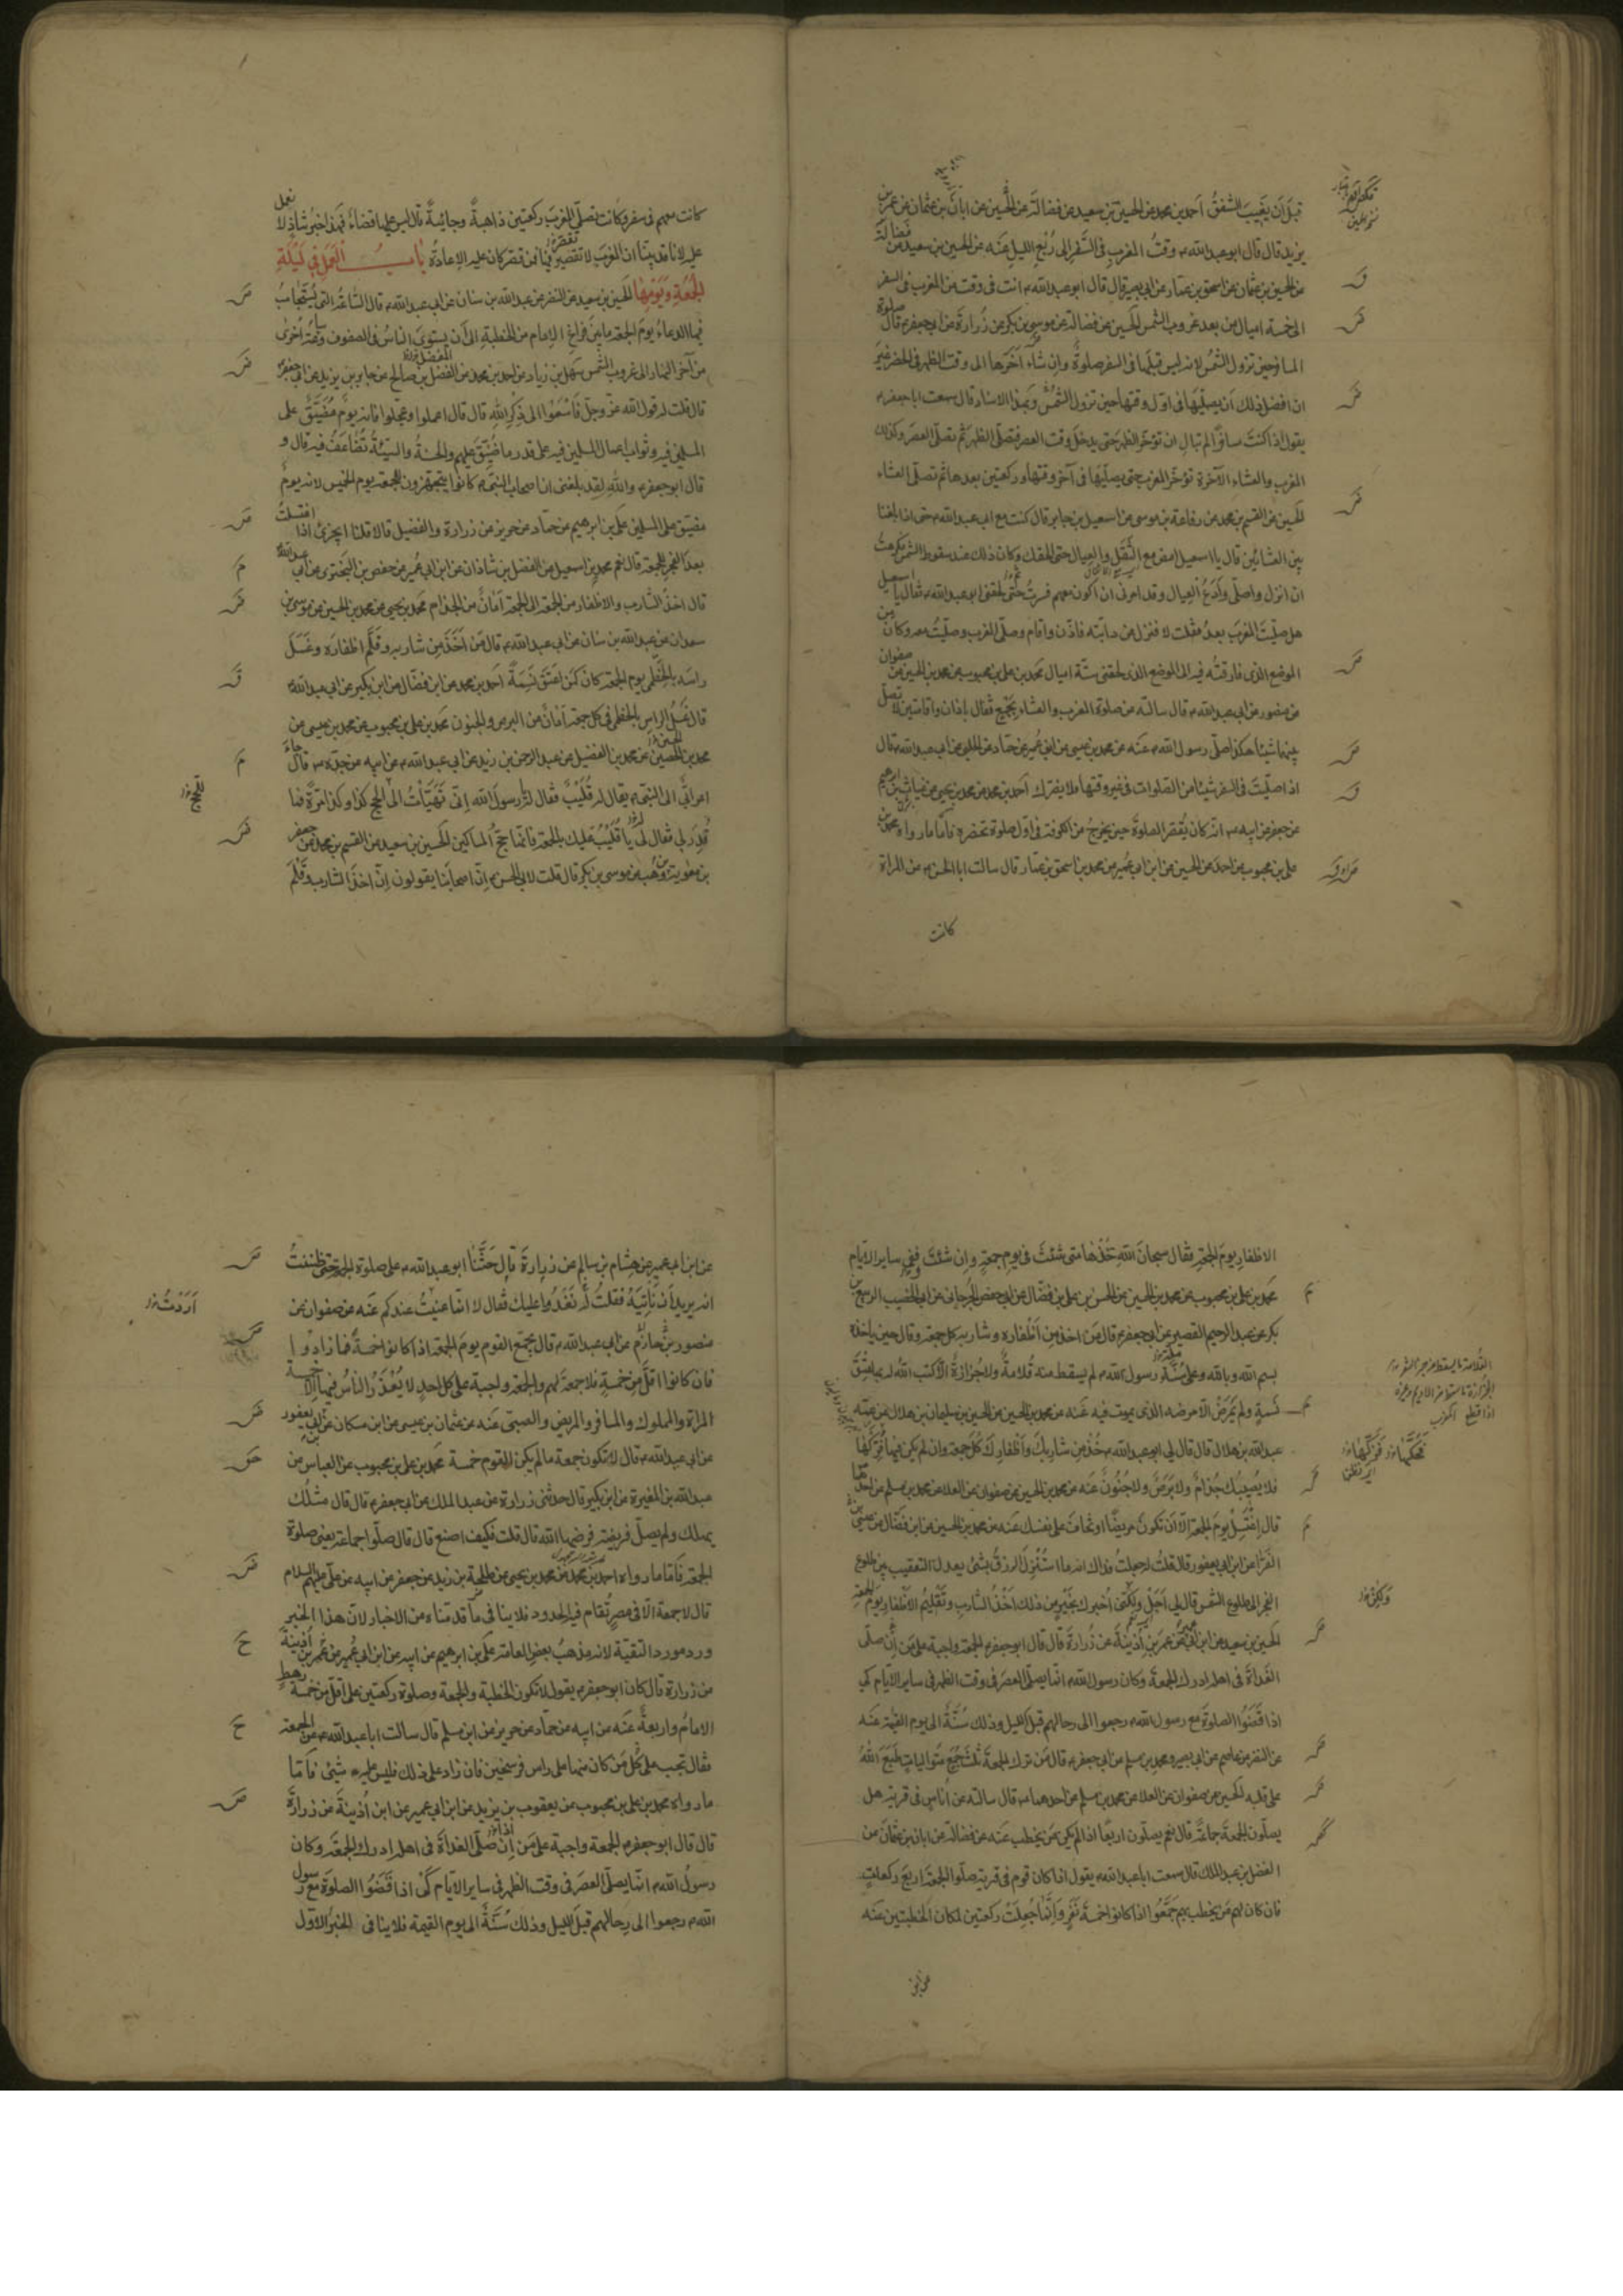 قبل أن يغيب الشفق أحمد بن محمد عن الحسين بن سعيد عن فضالة عن الحسين عن أبان بن عثمان عن عمر بن
يزيد قال قال ابو عبد الله ع وقت المغرب في السفر إلى ربع الليل عنه عن الحسين بن سعيد عن فضالة
عن الحسين بن عثمان عن اسحق بن عمار عن ابي بصير قال قال ابو عبد الله ع انت في وقت من المغرب في السفر
الى خمسة اميال من بعد غروب الشمس الحسين عن فضالة عن موسى بن بكر عن زرارة عن ابي جعفر ع قال صلوة
المسافر حين تزول الشمس لانه ليس قبلها في السفر صلوة وإن شاء أخرها الى وقت الظهر في الحضر غير
ان افضل ذلك ان يصليها في اول وقتها حين تزول الشمس وبهذا الاسناد قال سمعت ابا جعفر ع
يقول اذا كنت مسافرا لم تبال ان تؤخر الظهر حتى يدخل وقت العصر فتصلي الظهر ثم تصلي العصر وكذلك
المغرب والعشاء الآخرة تؤخر المغرب حتى يصليها في آخر وقتها وركعتين بعدها ثم تصلي العشاء
الحسين عن القسم بن محمد عن رفاعة بن موسى عن اسمعيل بن جابر قال كنت مع ابي عبد الله ع حتى اذا بلغنا
بين العشائين قال يا اسمعيل امض مع الثقل والعيال حتى الحقك وكان ذلك عند سقوط الشمس فكرهت
ان انزل واصلي وأدع العيال وقد امرني ان اكون معهم فسرت حتى لحقني ابو عبد الله ع فقال يا اسمعيل
هل صليت المغرب بعد فقلت لا فنزل عن دابته فاذن واقام وصلى المغرب وصليت معه وكان من
الموضع الذي فارقته فيه الى الموضع الذي لحقني ستة اميال محمد بن علي بن محبوب عن محمد بن الحسين عن صفوان
عن منصور عن ابي عبد الله ع قال سالته عن صلوة المغرب والعشاء بجمع فقال باذان واقامتين لا تصل
بينهما شيئا هكذا صلى رسول الله ص عنه عن محمد بن عيسى عن ابن ابي عمير عن حماد عن الحلبي عن ابي عبد الله ع قال
اذا صليت في السفر شيئا من الصلوات في غير وقتها فلا يضرك أحمد بن محمد عن محمد بن يحيى عن غياث بن ابرهيم
عن جعفر عن ابيه ع انه كان يقصر الصلوة حين يخرج من الكوفة في اول صلوة تحضره فاما ما رواه محمد بن
علي بن محبوب عن احمد عن الحسين عن ابن ابي عمير عن محمد بن اسحق بن عمار قال سالت ابا الحسن ع عن امراة
كانت
كانت معهم في سفر وكانت تصلي المغرب ركعتين ذاهبة وجائية قال ليس عليها قضاء فهذا خبر شاذ لا نعمل
عليه لانا قد بينا ان المغرب لا تقصير فيها فمن قصر كان عليه الاعادة باب العمل في ليلة
الجمعة ويومها الحسين بن سعيد عن النضر عن عبد الله بن سنان عن ابي عبد الله ع قال الساعة التي يستجاب
فيها الدعاء يوم الجمعة ما بين فراغ الامام من الخطبة الى أن يستوي الناس في الصفوف وساعة أخرى
من آخر النهار الى غروب الشمس سهل بن زياد عن احمد بن محمد عن المفضل بن صالح عن جابر بن يزيد عن ابي جعفر ع
قال قلت له قول الله عز وجل فاسعوا الى ذكر الله قال قال اعملوا وعجلوا فانه يوم مضيق على
المسلمين فيه وثواب اعمال المسلمين فيه على قدر ما ضيق عليهم والحسنة والسيئة تضاعف فيه قال و
قال ابو جعفر ع والله لقد بلغني ان اصحاب النبي ص كانوا يتجهزون للجمعة يوم الخميس لانه يوم
مضيق على المسلمين علي بن ابرهيم عن حماد عن حريز عن زرارة والفضيل قالا قلنا ايجزئ اذا اغتسلت
بعد الفجر للجمعة قال نعم محمد بن اسمعيل عن الفضل بن شاذان عن ابن ابي عمير عن حفص بن البختري عن ابي عبد الله ع
قال اخذ الشارب والاظفار من الجمعة الى الجمعة أمان من الجذام محمد بن يحيى عن محمد بن الحسين عن موسى بن
سعدان عن عبد الله بن سنان عن ابي عبد الله ع قال من أخذ من شاربه وقلم اظفاره وغسل
راسه بالخطمي يوم الجمعة كان كمن اعتق نسمة احمد بن محمد عن ابن فضال عن ابن بكير عن ابي عبد الله ع
قال غسل الراس بالخطمي في كل جمعة أمان من البرص والجنون محمد بن علي بن محبوب عن محمد بن عيسى عن
محمد بن الحصين عن محمد بن الفضيل عن عبد الرحمن بن زيد عن ابي عبد الله ع عن ابيه عن جده ع قال جاء
اعرابي الى النبي ص يقال له قليب فقال له يا رسول الله اني تهيأت الى الحج كذا وكذا مرة فما
قدر لي فقال لي يا قليب عليك بالجمعة فانها حج المساكين الحسين بن سعيد عن القسم بن محمد عن جعفر
بن معوية بن وهب عن موسى بن بكر قال قلت لابي الحسن ع ان اصحابنا يقولون ان اخذ الشارب وقلم
الاظفار يوم الجمعة فقال سبحان الله خذها متى شئت في يوم جمعة وان شئت ففي ساير الايام
محمد بن علي بن محبوب عن محمد بن الحسين عن الحسن بن علي بن فضال عن ابي حفص الجرجاني عن ابي الخضيب الربيع بن
بكر عن عبد الرحيم القصير عن ابي جعفر ع قال من اخذ من أظفاره وشاربه كل جمعة وقال حين ياخذه
بسم الله وبالله وعلى سنة رسول الله ص لم يسقط منه قلامة ولا جزازة الا كتب الله له بها عتق
نسمة ولم يمرض الا مرضه الذي يموت فيه عنه عن محمد بن الحسين عن الحسين بن سليمان بن هلال عن عمه
عبد الله بن هلال قال قال لي ابو عبد الله ع خذ من شاربك وأظفارك كل جمعة وان لم يكن فيها فزكها
فلا يصيبك جذام ولا برص ولا جنون عنه عن محمد بن الحسين عن صفوان عن العلا عن محمد بن مسلم عن احدهما
قال اغتسل يوم الجمعة الا أن تكون مريضا او تخاف على نفسك عنه عن محمد بن الحسين عن ابن فضال عن عيسى
الفراء عن ابن ابي يعفور قال قلت له جعلت فداك انه ما استنزل الرزق بشئ يعدل التعقيب بين طلوع
الفجر الى طلوع الشمس قال لي أجل ولكني أخبرك بخير من ذلك أخذ الشارب وتقليم الاظفار يوم الجمعة
الحسين بن سعيد عن ابن ابي عمير عن عمر بن أذينة عن زرارة قال قال ابو جعفر ع الجمعة واجبة على من أن صلى
الغداة في اهله ادرك الجمعة وكان رسول الله ص انما يصلي العصر في وقت الظهر في ساير الايام كي
اذا قضوا الصلوة مع رسول الله ص رجعوا الى رحالهم قبل الليل وذلك سنة الى يوم القيمة عنه
عن النضر عن عاصم عن ابي بصير ومحمد بن مسلم عن ابي جعفر ع قال من ترك الجمعة ثلث جمع متواليات طبع الله
على قلبه الحسين عن صفوان عن العلا عن محمد بن مسلم عن احدهما ع قال سالته عن أناس في قرية هل
يصلون الجمعة جماعة قال نعم يصلون اربعا اذا لم يكن من يخطب عنه عن فضالة عن ابان بن عثمان عن
الفضل بن عبد الملك قال سمعت ابا عبد الله ع يقول اذا كان قوم في قرية صلوا الجمعة اربع ركعات
فان كان لهم من يخطب بهم جمعوا اذا كانوا خمسة نفر وانما جعلت ركعتين لمكان الخطبتين عنه
عن ابن
عن ابن ابي عمير عن هشام بن سالم عن زرارة قال حثنا ابو عبد الله ع على صلوة الجمعة حتى ظننت
انه يريد أن نأتيه فقلت له نغدوا عليك فقال لا انما عنيت عندكم عنه عن صفوان عن
منصور بن حازم عن ابي عبد الله ع قال يجمع القوم يوم الجمعة اذا كانوا خمسة فما زادوا
فان كانوا اقل من خمسة فلا جمعة لهم والجمعة واجبة على كل احد لا يعذر الناس فيها الا خمسة
المراة والمملوك والمسافر والمريض والصبي عنه عن عثمان بن عيسى عن ابن مسكان عن ابن ابي يعفور
عن ابي عبد الله ع قال لا تكون جمعة ما لم يكن القوم خمسة محمد بن علي بن محبوب عن العباس عن
عبد الله بن المغيرة عن ابن بكير قال حدثني زرارة عن عبد الملك عن ابي جعفر ع قال قال مثلك
يهلك ولم يصل فريضة فرضها الله قال قلت فكيف اصنع قال قال صلوا جماعة يعني صلوة
الجمعة فاما ما رواه احمد بن محمد عن محمد بن يحيى عن طلحة بن زيد عن جعفر عن ابيه عن علي عليهم السلام
قال لا جمعة الا في مصر تقام فيه الحدود فلا ينافي ما قدمناه من الاخبار لان هذا الخبر
ورد مورد التقية لانه مذهب بعض العامة علي بن ابرهيم عن ابيه عن ابن ابي عمير عن عمر بن أذينة
عن زرارة قال كان ابو جعفر ع يقول لا تكون الخطبة والجمعة وصلوة ركعتين على اقل من خمسة رهط
الامام واربعة عنه عن ابيه عن حماد عن حريز عن ابن مسلم قال سالت ابا عبد الله ع عن الجمعة
فقال تجب على كل من كان منها على راس فرسخين فان زاد على ذلك فليس عليه شئ فاما
ما رواه محمد بن علي بن محبوب عن يعقوب بن يزيد عن ابن ابي عمير عن ابن أذينة عن زرارة
قال قال ابو جعفر ع الجمعة واجبة على من إن صلى الغداة في اهله ادرك الجمعة وكان
رسول الله ص انما يصلي العصر في وقت الظهر في ساير الايام كي اذا قضوا الصلوة مع رسول
الله ص رجعوا الى رحالهم قبل الليل وذلك سنة الى يوم القيمة فلا ينافي الخبر الاول